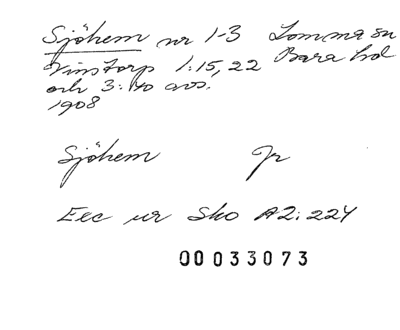 Sjöhem nr 1-3 Lomma sn
Vinstorp 1:15, 22 Bara hd
och 3:40 avs.
1908
Sjöhem Jr
Exc ur Sko A2: 224
00033073